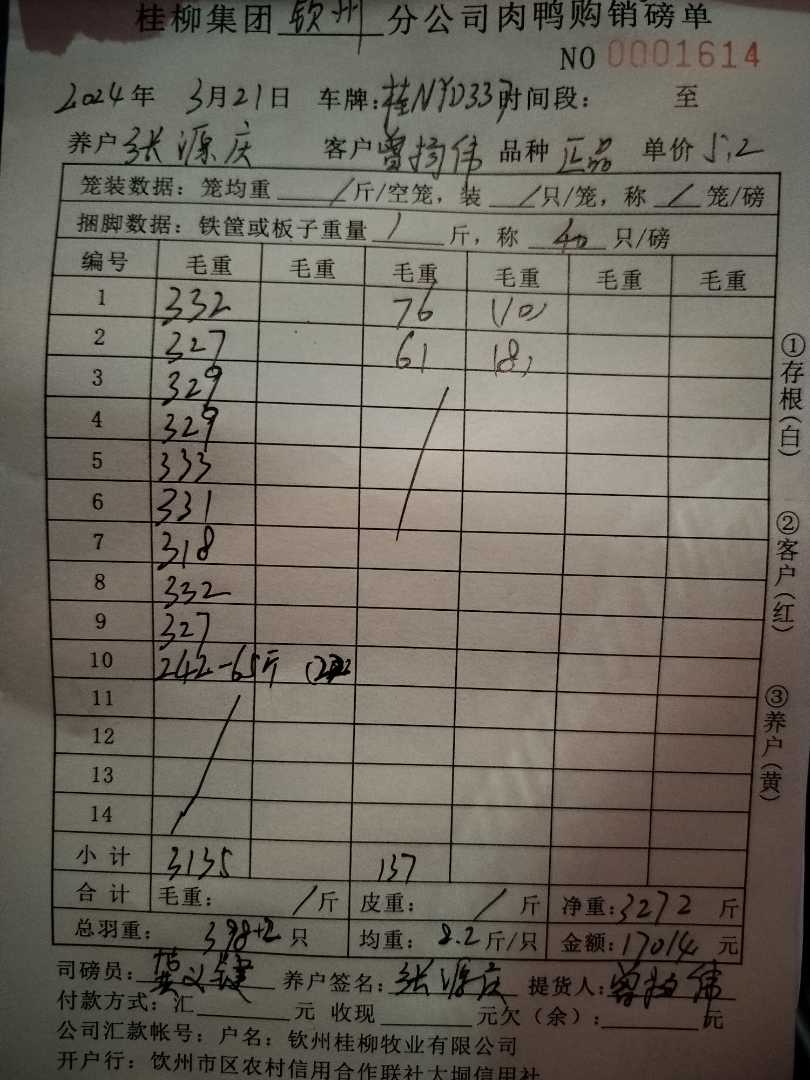 桂柳集团 钦州 分公司肉鸭购销磅单
NO 0001614
2024年 3月21日 车牌:桂NYD337 时间段: 至
养户 张源庆 客户 曾 伟 品种 正品 单价 5.2
笼装数据: 笼均重 / 斤/空笼, 装 / 只/笼, 称 / 笼/磅
捆脚数据: 铁筐或板子重量 / 斤, 称 40 只/磅
编号 毛重 毛重 毛重 毛重 毛重 毛重
1 332 76 (10)
2 327 61 (8)
3 329
4 329
5 333
6 331
7 318
8 332
9 327
10 242-65斤
11
12
13
14
小计 3135 137
合计 毛重: / 斤 皮重: / 斤 净重:3272 斤
总羽重: 398+2 只 均重: 8.2 斤/只 金额:17014 元
司磅员: 养户签名: 张源庆 提货人: 曾 伟
付款方式: 汇 元 收现 元欠(余): 元
公司汇款帐号: 户名: 钦州桂柳牧业有限公司
开户行: 钦州市区农村信用合作联社大垌信用社
①存根(白)
②客户(红)
③养户(黄)